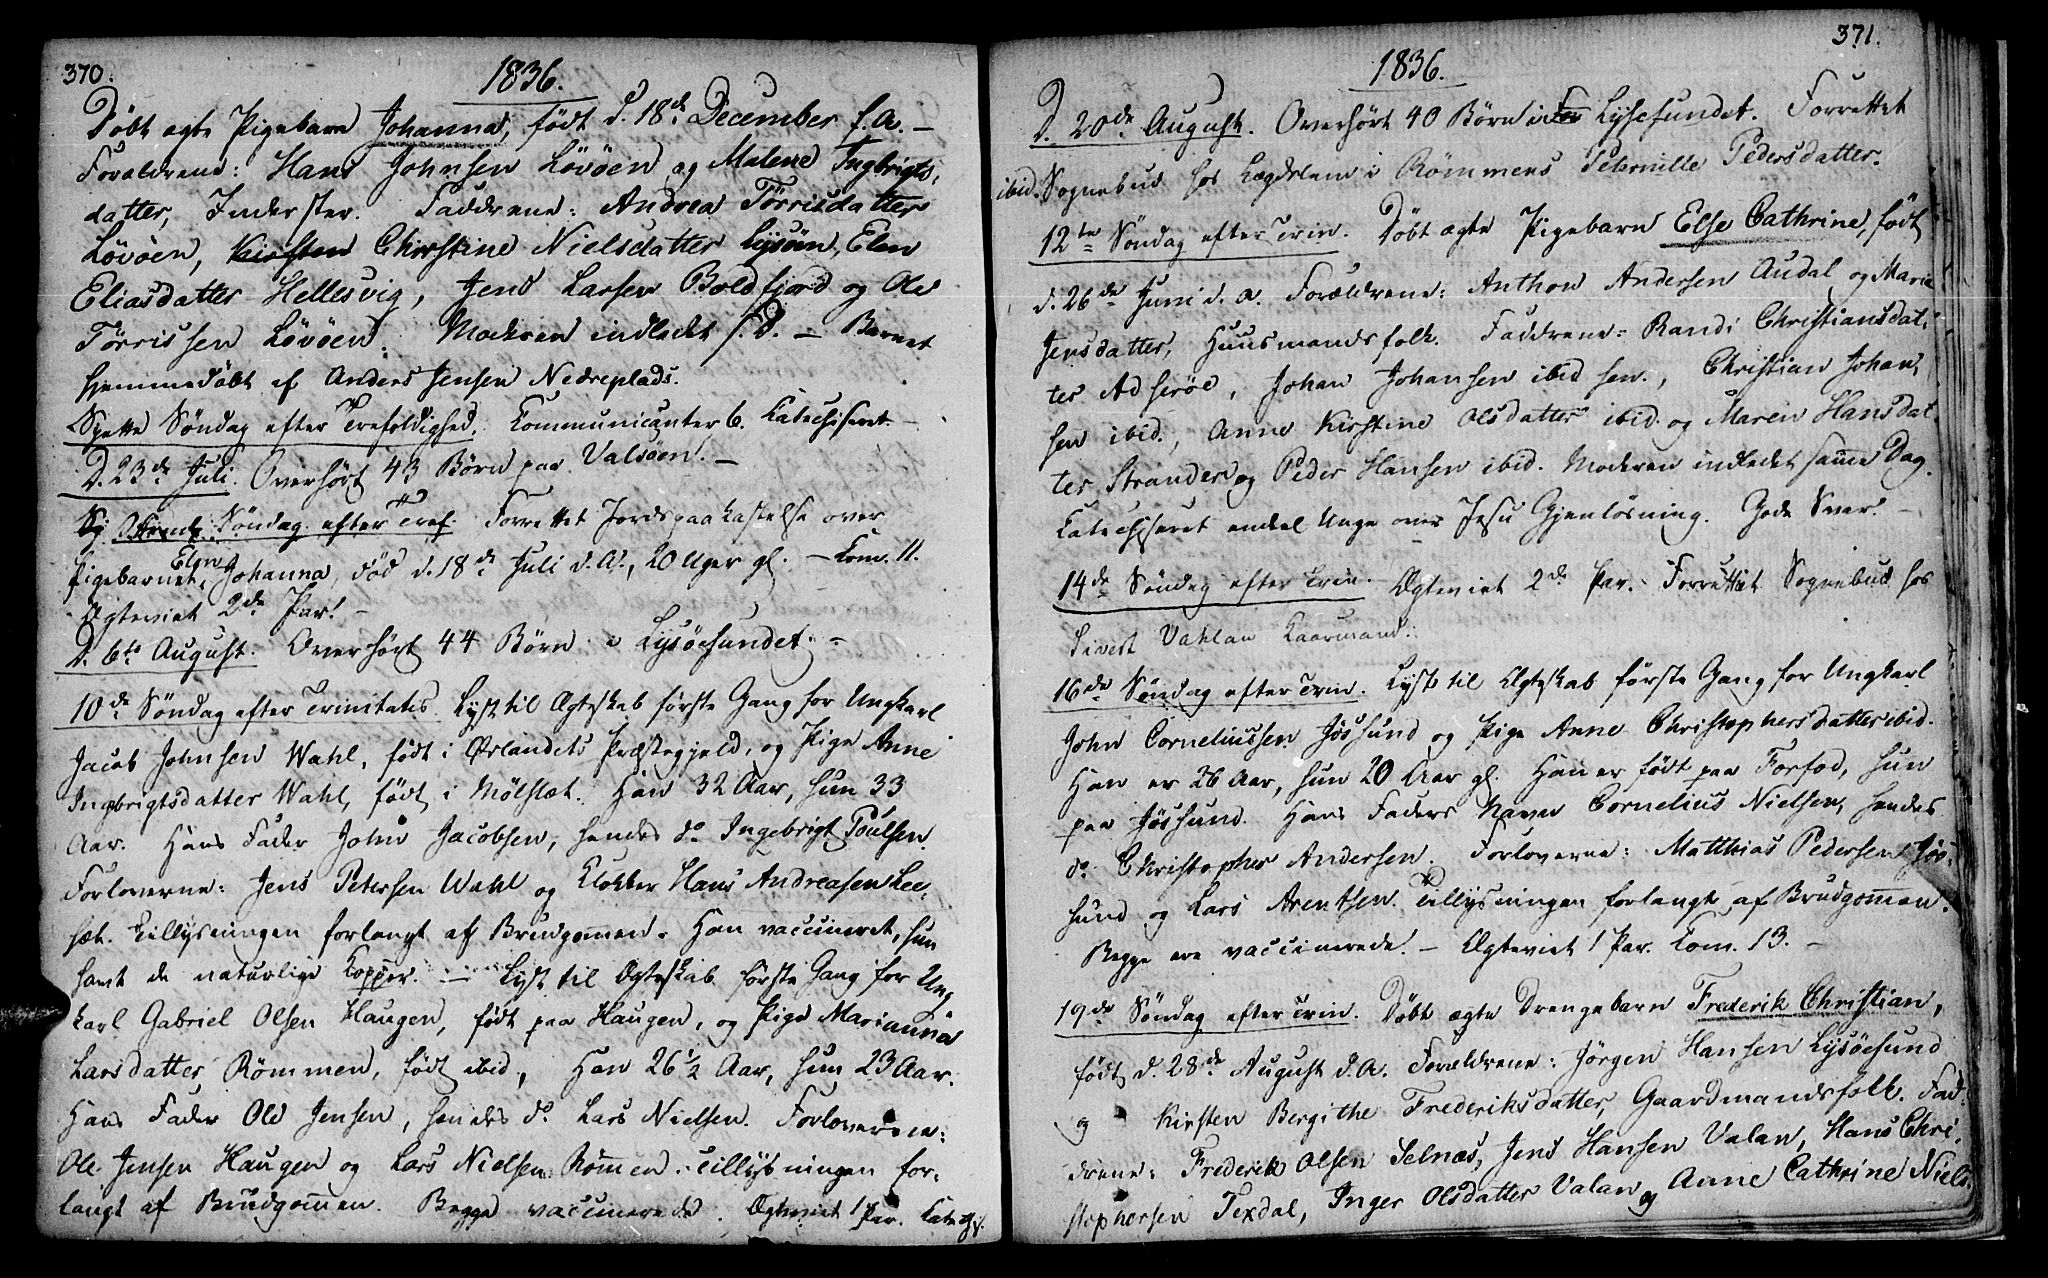 370.
1836.
Döbt ægte Pigebarn Johanna, född d. 18de December f. A. –
Forældrene: Hans Johnsen Lövöen og Malene Ingbrigts-
datter, Inderster. Faddrene: Andrea Törrisdatter
Lövöen, Kirsten Chirstine Nielsdatter Lysöen, Elen
Eliasdatter Hellesvig, Jens Larsen Boldfjord og Ole
Törrissen Lövöen. Moderen indledet s. D. – Barnet
hjemmedöbt af Anders Jensen Nedreplads.
Syette Söndag efter Trefoldighed. Communicanter 6. Catechiseret. –
D. 23de Juli. Overhört 43 Börn paa Valsöen. –
Ottende Söndag efter Tref. Forrettet Jordspaakastelse over
Pigebarnet Elen Johanna, död d. 18de Juli d. A., 20 Uger gl. – Com. 11.
Ægteviet 2de Par. –
D. 6te August. Overhört 44 Börn i Lysöesundet. –
10de Söndag efter Trinitatis. Lyst til Ægteskab förste Gang for Ungkarl
Jacob Johnsen Wahl, född i Ørlandets Præstegjeld, og Pige Anne
Ingbrigtsdatter Wahl, född i Mölslæt. Han 32 Aar, hun 33
Aar. Hans Fader John Jacobsen, hendes do Ingebrigt Poulsen.
Forloverne: Jens Petersen Wahl og Klokker Hans Andreasen Lee-
sæt. Tillysningen forlangt af Brudgommen. Han vaccineret, hun
havt de naturlige Kopper. – Lyst til Ægteskab förste Gang for Ung-
karl Gabriel Olsen Haugen, född paa Haugen, og Pige Marianna
Larsdatter Römmen, född ibid, Han 26 1/2 Aar, hun 23 Aar.
Hans Fader Ole Jensen, hendes do Lars Nielsen. Forloverne:
Ole Jensen Haugen og Lars Nielsen Römmen. Tillysningen for-
langt af Brudgommen. Begge vaccinerede. Ægteviet 1 Par. Catechs.
371.
1836.
D. 20de August. Overhört 40 Börn i Lysesundet. Forrettet
ibid. Sognebud hos Lægdslem i Römmens Pedernille Pedersdatter.
12te Söndag efter Trin. Döbt ægte Pigebarn Else Cathrine, född
d. 26de Juni d. a. Forældrene: Anthon Andersen Audal og Marie
Jensdatter, Huusmandsfolk. Faddrene: Randi Christiansdat-
ter Adseröe, Johan Johansen ibid sen., Christian Johan-
sen ibid., Anne Kirstine Olsdatter ibid. og Maren Hansdat-
ter Strander og Peder Hansen ibid. Moderen indledet samme Dag.
Catechiseret endel Unge over Jesu Gjenlösning. Gode Svar. –
14de Söndag efter Trin. Ægteviet 2de Par. Forrettet Sognebud hos
Sivert Vahlan Kaarmand.
16de Söndag efter Trin. Lyst til Ægteskab förste Gang for Ungkarl
John Corneliussen Jössund og Pige Anne Christophersdatter ibid.
Han er 26 Aar, hun 20 Aar gl. Han er född paa Forfod, hun
paa Jössund. Hans Faders Navn Cornelius Nielsen, hendes
do Christopher Andersen. Forloverne: Matthias Pedersen Jös-
sund og Lars Arentsen. Tillysningen forlangt af Brudgommen.
Begge ere vaccinerede. – Ægteviet 1 Par. Com. 13. –
19de Söndag efter Trin. Döbt ægte Drengebarn Frederik Christian,
född d. 28de August d. A. Forældrene: Jörgen Hansen Lysöesund
og Kirsten Bergithe Frederiksdatter, Gaardmandsfolk. Fad-
drene: Frederik Olsen Selnæs, Jens Hansen Valan, Hans Chri-
stophersen Texdal, Inger Olsdatter Valan og Anne Cathrine Niels